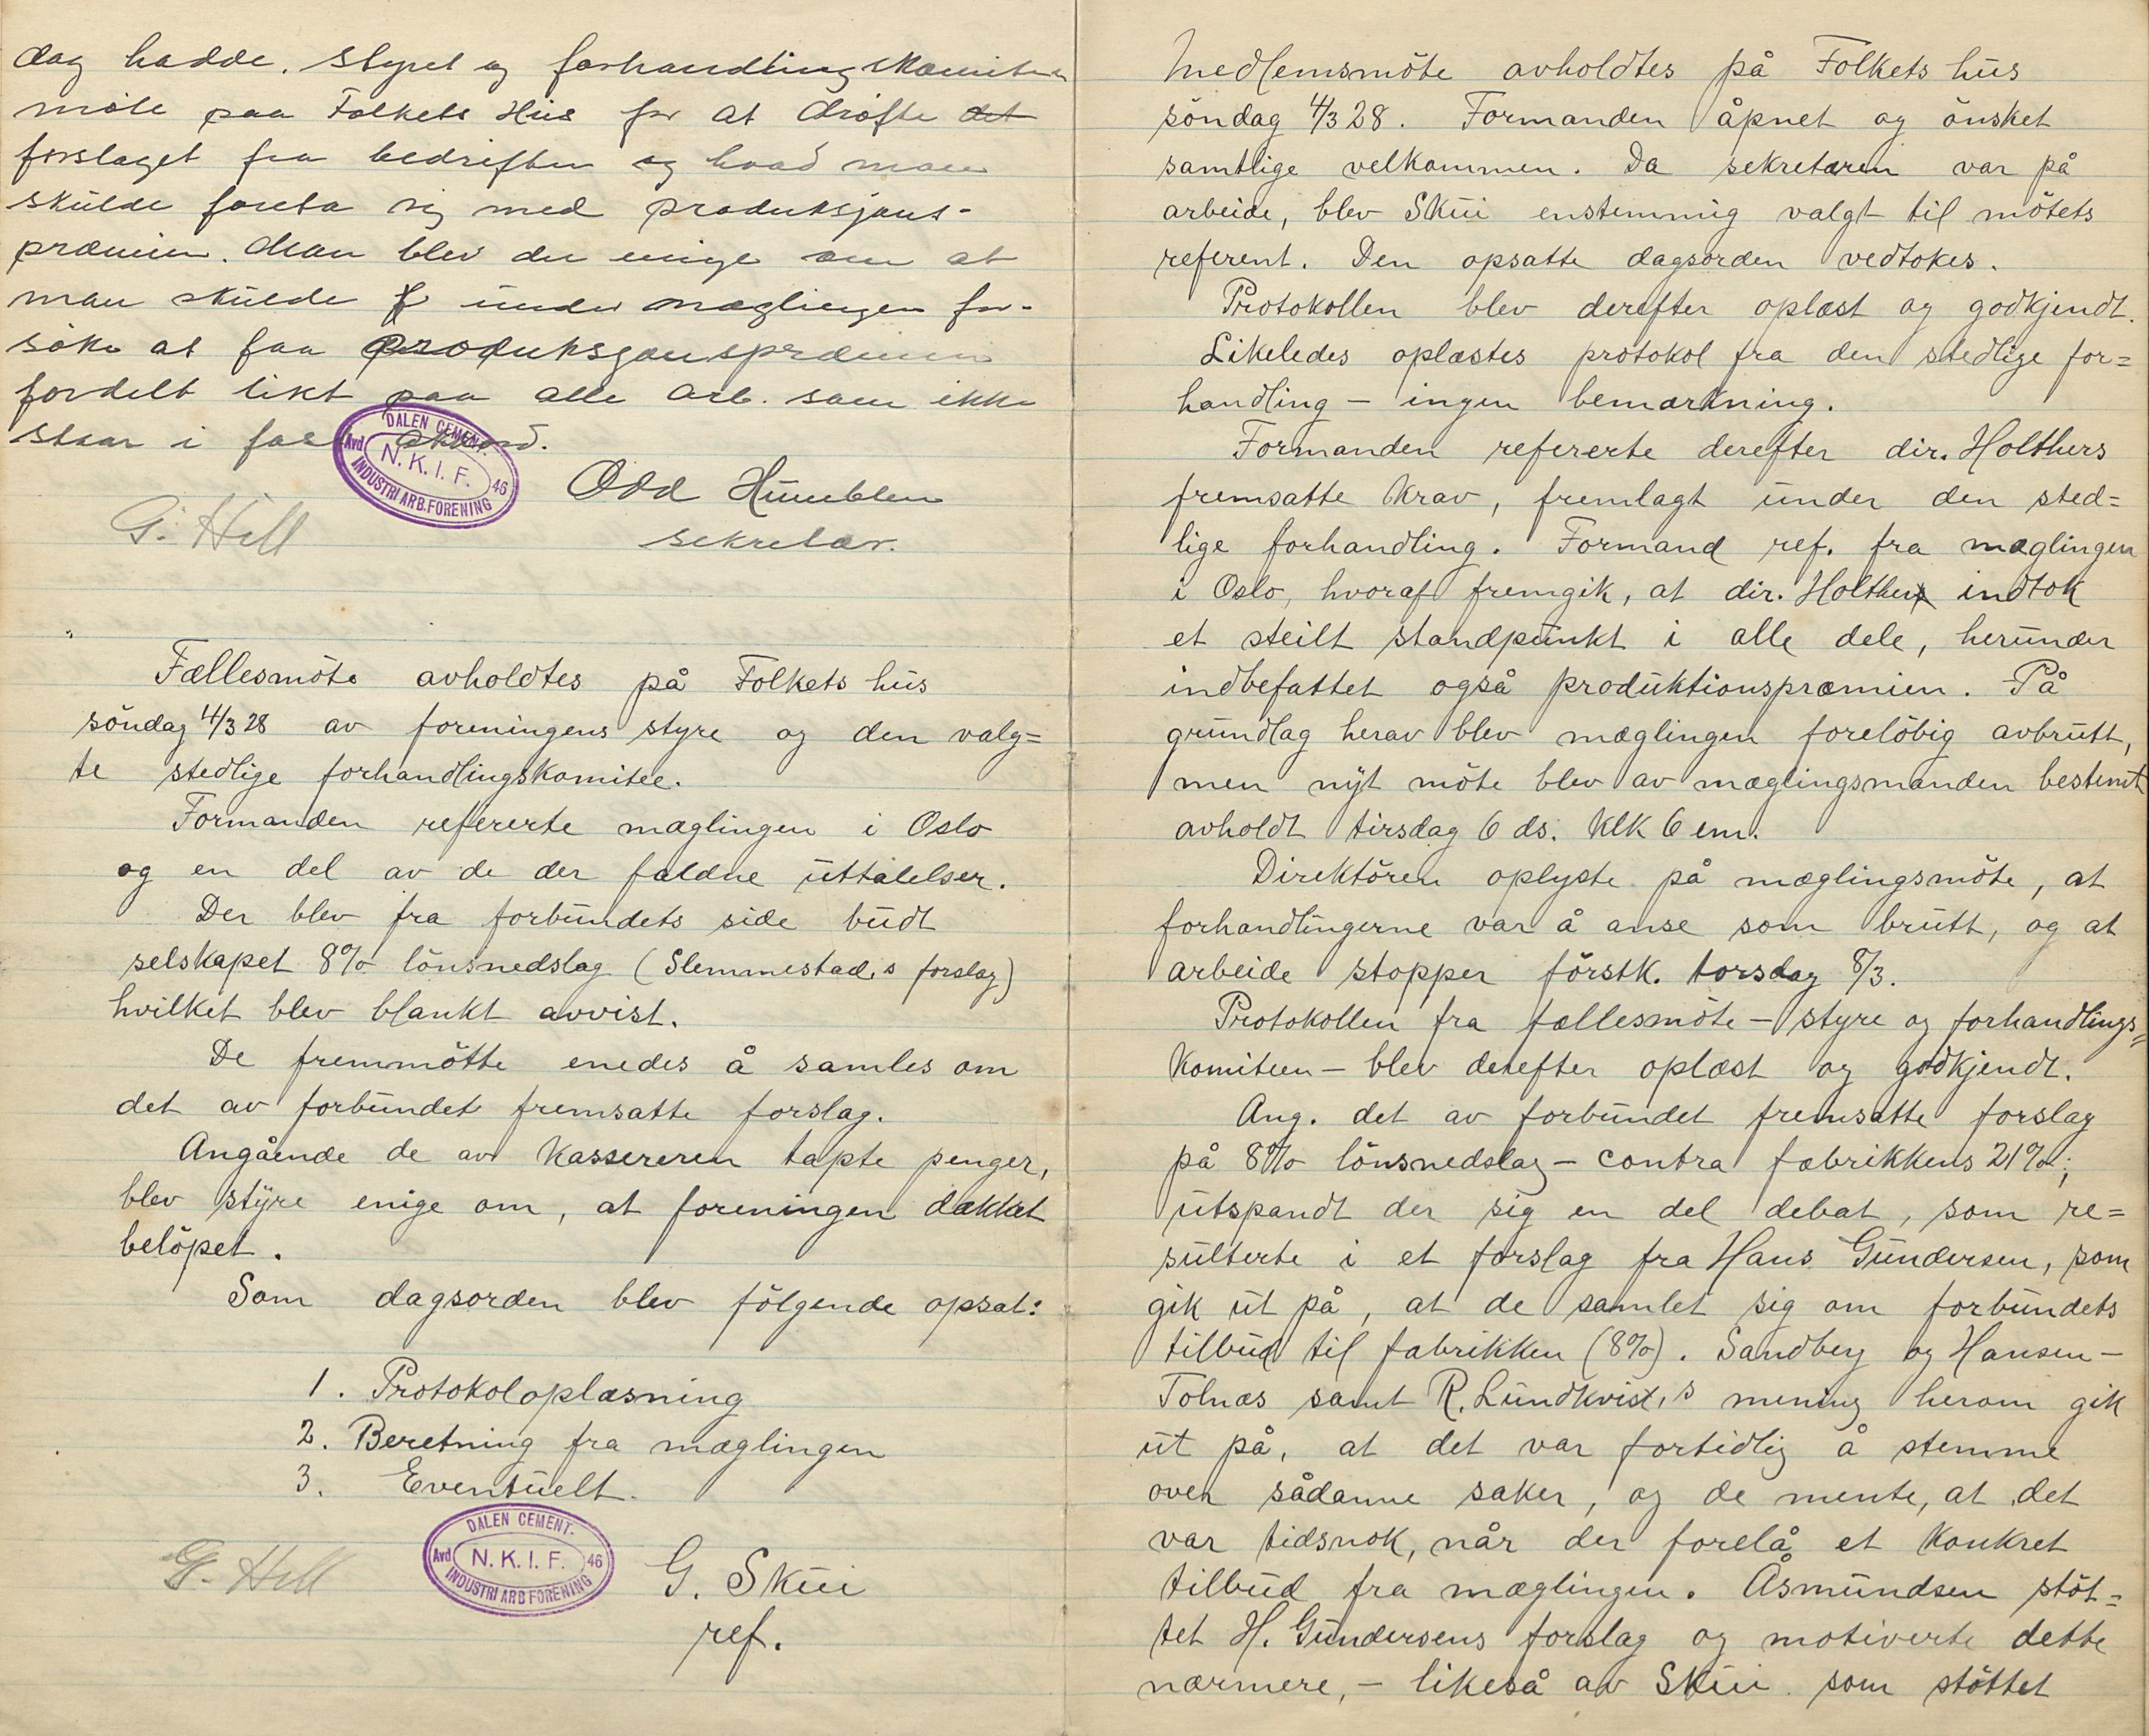 dag hadde. styret og forhandlingskomiteen
möte paa Folkets Hus for at dröfte det
forslaget fra bedriften og hvad man
skulde foreta sig med produksjons-
præmien. Man blev der enige om at
man skulde f under mæglingen for-
söke at faa produksjonspræmien
fordelt likt paa alle arb. som ikke
staar i fast akkord.
DALEN CEMENT.
Avd N.K.I.F. 46
INDUSTRIARB.FORENING
Odd Humblen
G. Hell
sekretær.
Fællesmöte avholdtes på Folkets hus
söndag 4/3 28 av foreningens styre og den valg=
te stedlige forhandlingskomitee.
Formanden refererte mæglingen i Oslo
og en del av de der faldne uttalelser.
Der blev fra forbundets side budt
selskapet 8% lönsnedslag (Slemmestad,s forslag)
hvilket blev blankt avvist.
De fremmötte enedes å samles om
det av forbundet fremsatte forslag.
Angående de av kassereren tapte penger,
blev styre enige om, at foreningen dækket
belöpet.
Som dagsorden blev fölgende opsat:
1. Protokoloplæsning
2. Beretning fra mæglingen
3. Eventuelt.
DALEN CEMENT.
Avd N.K.I.F. 46
INDUSTRIARB FORENING
G. Hell
G. Skui
ref.
Medlemsmöte avholdtes på Folkets hus
söndag 4/3 28. Formanden åpnet og önsket
samtlige velkommen. Da sekretæren var på
arbeide, blev Skui enstemmig valgt til mötets
referent. Den opsatte dagsorden vedtokes.
Protokollen blev derefter oplæst og godkjendt.
Likeledes oplæstes protokol fra den stedlige for=
handling – ingen bemærkning.
Formanden refererte derefter dir. Holthers
fremsatte krav, fremlagt under den sted=
lige forhandling. Formand ref. fra mæglingen
i Oslo, hvoraf fremgik, at dir. Holther indtok
et steilt standpunkt i alle dele, herunder
indbefattet også produktionspræmien. På
grundlag herav blev mæglingen forelöbig avbrutt,
men nyt möte blev av mæglingsmanden bestemt
avholdt tirsdag 6 ds. klk 6 em.
Direktören oplyste på mæglingsmöte, at
forhandlingerne var å anse som brutt, og at
arbeide stopper förstk. torsdag 8/3.
Protokollen fra fællesmöte – styre og forhandlings=
komiteen – blev derefter oplæst og godkjendt.
Ang. det av forbundet fremsatte forslag
på 8% lönsnedslag – contra fabrikkens 21%;
utspandt der sig en del debat, som re=
sulterte i et forslag fra Hans Gundersen, som
gik ut på, at de samlet sig om forbundets
tilbud til fabrikken (8%). Sandberg og Hansen –
Tolnæs samt R. Lundkvist,s mening herom gik
ut på, at det var fortidlig å stemme
over sådanne saker, og de mente, at det
var tidsnok, når der forelå et konkret
tilbud fra mæglingen. Åsmundsen stöt=
tet H. Gundersens forslag og motiverte dette
nærmere, – likeså av Skui som stöttet